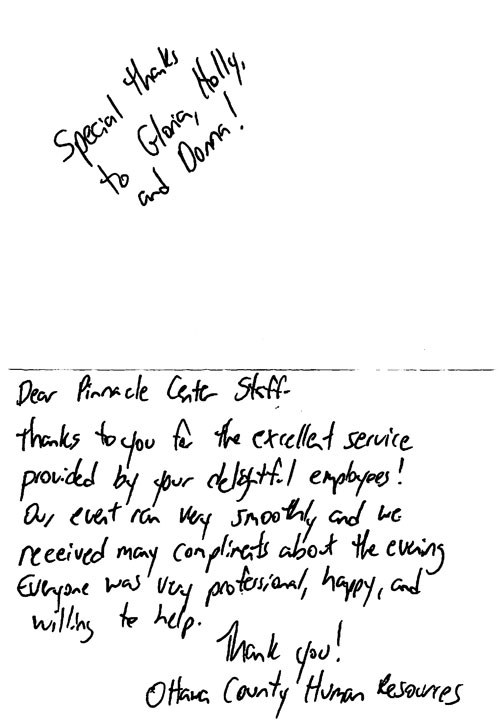 Special thanks
to Gloria, Holly,
and Donna!
Dear Pinnacle Center Staff-
Thanks to you for the excellent service
provided by your delightful employees!
Our event ran very smoothly and we
received many compliments about the evening
Everyone was very professional, happy, and
willing to help.
Thank you!
Ottawa County Human Resources